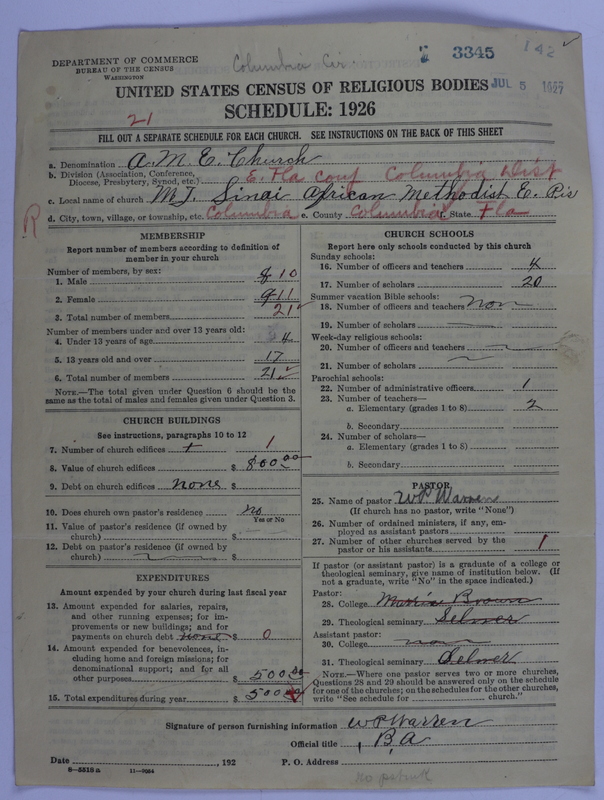 DEPARTMENT OF COMMERCE
BUREAU OF THE CENSUS
WASHINGTON
Columbia Cir
3345
142
UNITED STATES CENSUS OF RELIGIOUS BODIES
JUL 5 1927
SCHEDULE: 1926
21
FILL OUT A SEPARATE SCHEDULE FOR EACH CHURCH. SEE INSTRUCTIONS ON THE BACK OF THIS SHEET
a. Denomination A. M. E. Church
b. Division (Association, Conference, Diocese, Presbytery, Synod, etc.) E. Fla conf Columbia Dist
c. Local name of church MT. Sinai African Methodist E. Pis
R
d. City, town, village, or township, etc. Columbia e. County Columbia f. State Fla
MEMBERSHIP
Report number of members according to definition of
member in your church
Number of members, by sex:
1. Male 8 10
2. Female 9 11
3. Total number of members 21
Number of members under and over 13 years old:
4. Under 13 years of age 4
5. 13 years old and over 17
6. Total number of members 21
NOTE.—The total given under Question 6 should be the
same as the total of males and females given under Question 3.
CHURCH BUILDINGS
See instructions, paragraphs 10 to 12
7. Number of church edifices 1
8. Value of church edifices $ 800.00
9. Debt on church edifices none $
10. Does church own pastor's residence no
Yes or No
11. Value of pastor's residence (if owned by
church) $
12. Debt on pastor's residence (if owned by
church) $
EXPENDITURES
Amount expended by your church during last fiscal year
13. Amount expended for salaries, repairs,
and other running expenses; for im-
provements or new buildings; and for
payments on church debt none $ 0
14. Amount expended for benevolences, in-
cluding home and foreign missions; for
denominational support; and for all
other purposes $ 500.00
15. Total expenditures during year $ 500.00
CHURCH SCHOOLS
Report here only schools conducted by this church
Sunday schools:
16. Number of officers and teachers 4
17. Number of scholars 20
Summer vacation Bible schools:
18. Number of officers and teachers non
19. Number of scholars
Week-day religious schools:
20. Number of officers and teachers
21. Number of scholars
Parochial schools:
22. Number of administrative officers 1
23. Number of teachers—
a. Elementary (grades 1 to 8) 2
b. Secondary
24. Number of scholars—
a. Elementary (grades 1 to 8)
b. Secondary
PASTOR
25. Name of pastor W P Warren
(If church has no pastor, write "None")
26. Number of ordained ministers, if any, em-
ployed as assistant pastors
27. Number of other churches served by the
pastor or his assistants 1
If pastor (or assistant pastor) is a graduate of a college or
theological seminary, give name of institution below. (If
not a graduate, write "No" in the space indicated.)
Pastor:
28. College Brown
29. Theological seminary Selmer
Assistant pastor:
30. College non
31. Theological seminary Selmer
NOTE.—Where one pastor serves two or more churches,
Questions 28 and 29 should be answered only on the schedule
for one of the churches; on the schedules for the other churches,
write "See schedule for church."
Signature of person furnishing information W P Warren
Official title B, A
Date , 192 P. O. Address
8—5518 a 11—9084